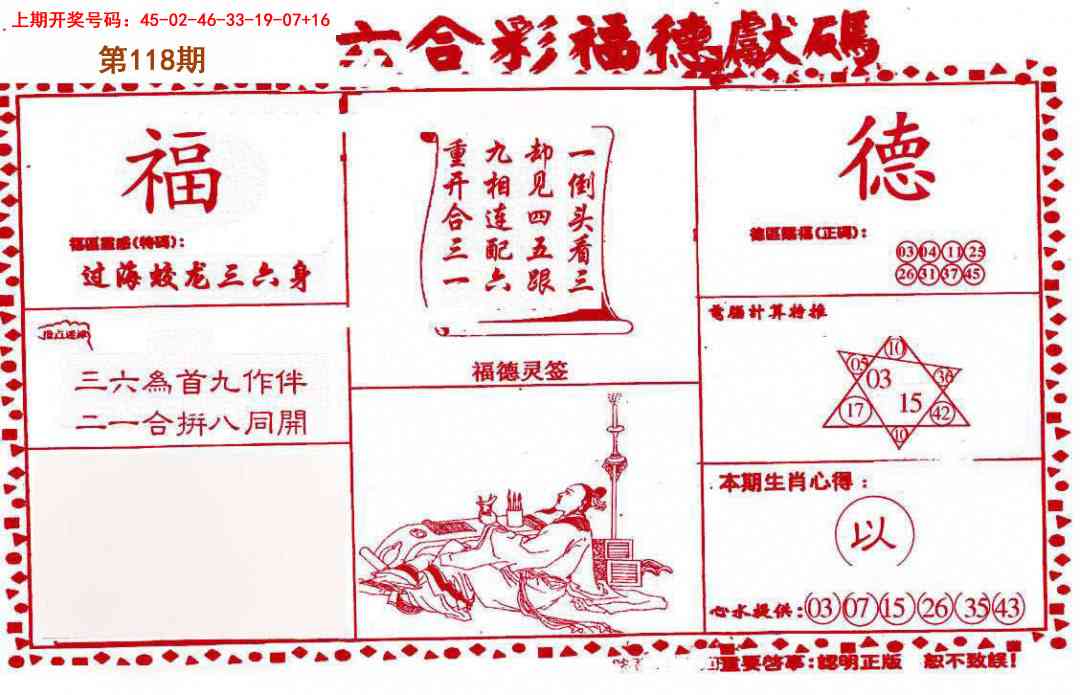 上期开奖号码：45-02-46-33-19-07+16
第118期
六合彩福德獻碼
福
福區靈感(特碼)：
过海蛟龙三六身
三六為首九作伴
二一合拼八同開
一倒头看三
却见四五跟
九相连配六
重开合三一
福德灵签
德
德區賜福(正碼)：
03 04 11 25
26 31 37 45
電腦計算特推
10
05 03 36
17 15 42
10
本期生肖心得：
以
心水提供：03 07 15 26 35 43
重要啓事：認明正版 恕不致誤！